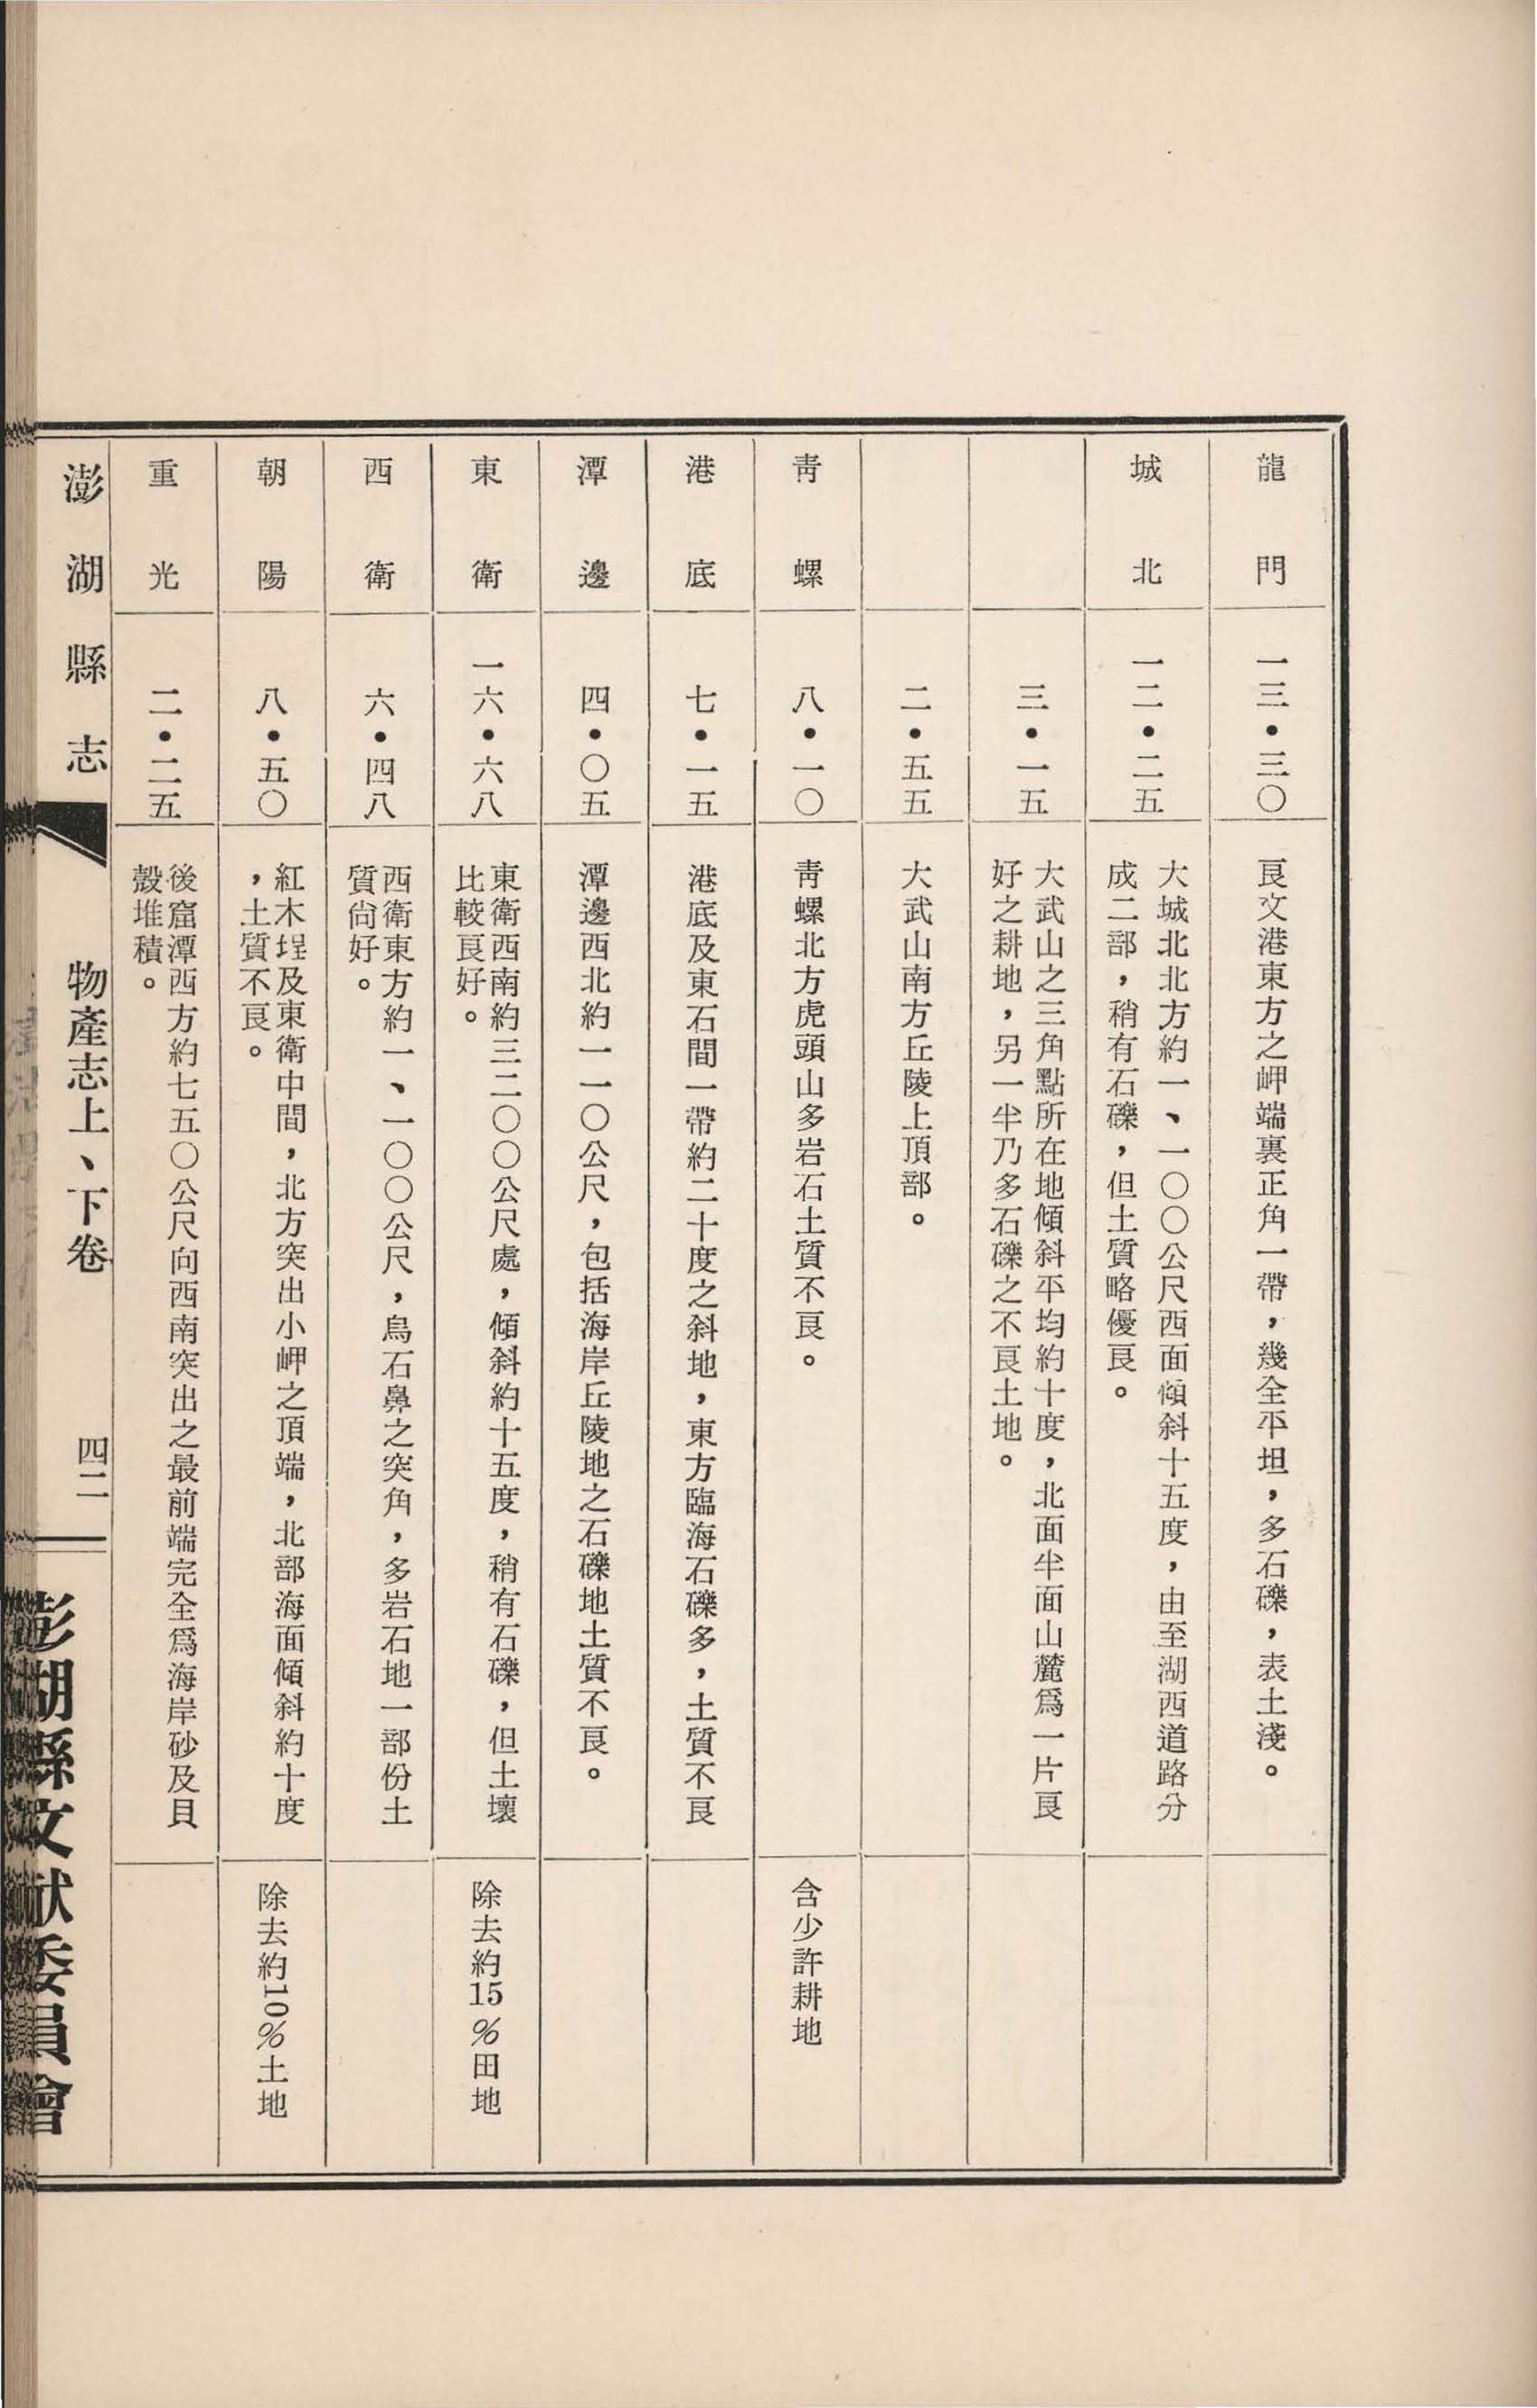 龍門
一三•三〇
良文港東方之岬端裏正角一帶，幾全平坦，多石礫，表土淺。
城北
一二•二五
大城北北方約一、一〇〇公尺西面傾斜十五度，由至湖西道路分
成二部，稍有石礫，但土質略優良。
三•一五
大武山之三角點所在地傾斜平均約十度，北面半面山麓爲一片良
好之耕地，另一半乃多石礫之不良土地。
二•五五
大武山南方丘陵上頂部。
靑螺
八•一〇
靑螺北方虎頭山多岩石土質不良。
含少許耕地
港底
七•一五
港底及東石間一帶約二十度之斜地，東方臨海石礫多，土質不良
潭邊
四•〇五
潭邊西北約一一〇公尺，包括海岸丘陵地之石礫地土質不良。
東衛
一六•六八
東衛西南約三二〇〇公尺處，傾斜約十五度，稍有石礫，但土壤
比較良好。
除去約15%田地
西衛
六•四八
西衛東方約一、一〇〇公尺，烏石鼻之突角，多岩石地一部份土
質尙好。
朝陽
八•五〇
紅木埕及東衛中間，北方突出小岬之頂端，北部海面傾斜約十度
，土質不良。
除去約10%土地
重光
二•二五
後窟潭西方約七五〇公尺向西南突出之最前端完全爲海岸砂及貝
殼堆積。
澎湖縣志
物產志上、下卷
四二
澎湖縣文献委員會